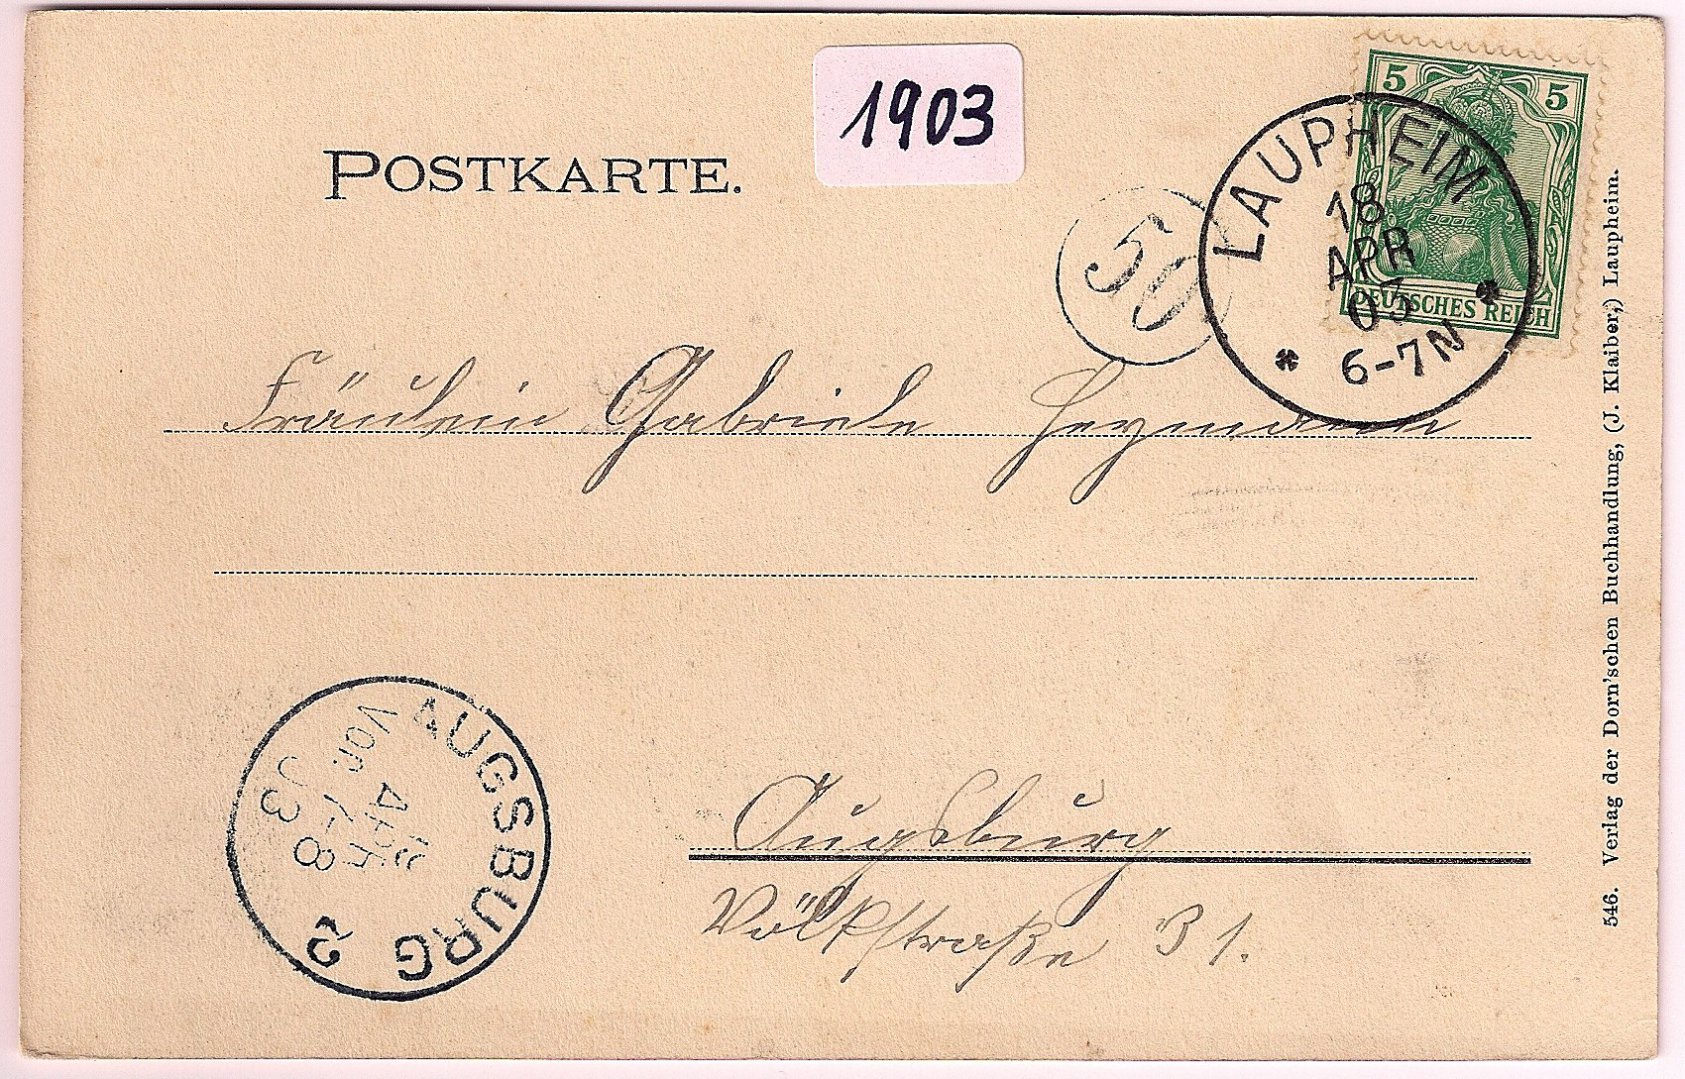 1903
POSTKARTE.
5 5
DEUTSCHES REICH
LAUPHEIM
18
APR
03
6-7N
50
Fräulein Gabriele Heymann
Augsburg
Völkstraße 31.
AUGSBURG 2
19
APR
Vor. 7-8
03
546. Verlag der Dorn'schen Buchhandlung, (J. Klaiber,) Laupheim.